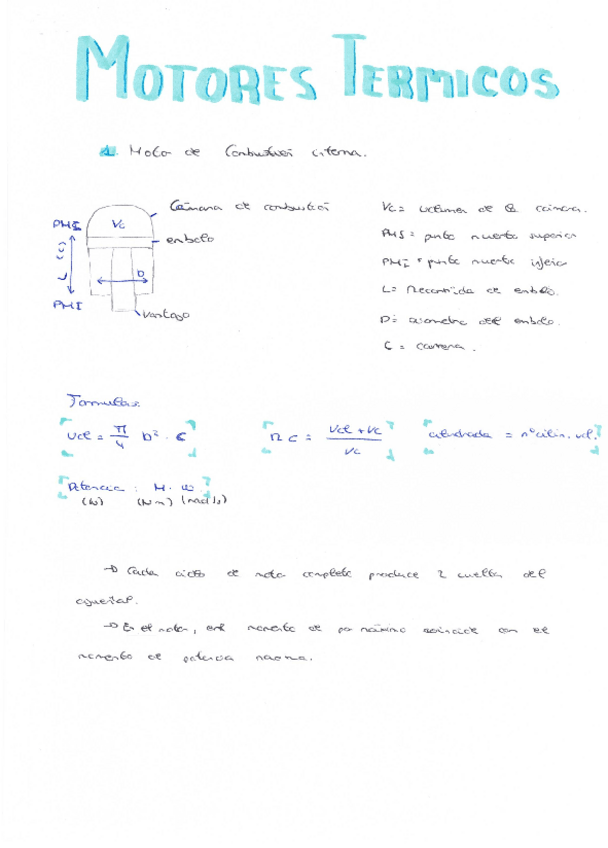 MOTORES TERMICOS
1. Motor de Combustión interna.
Cámara de combustión
Vc
PMS
embolo
L (c)
D
PMI
vastago
Vc = volumen de la cámara.
PMS = punto muerto superior
PMI = punto muerto inferior
L = Recorrida de embolo.
D = diametro del embolo.
C = carrera.
Formulas:
Vcil = π/4 D² · C
Rc = Vcil + Vc / Vc
cilindrada = nº cilin. vcil.
Potencia : M · ω
(W) (N·m) (rad/s)
→ Cada ciclo de motor completo produce 2 vueltas del
cigueñal.
→ En el motor, el momento de par máximo coincide con el
momento de potencia maxima.